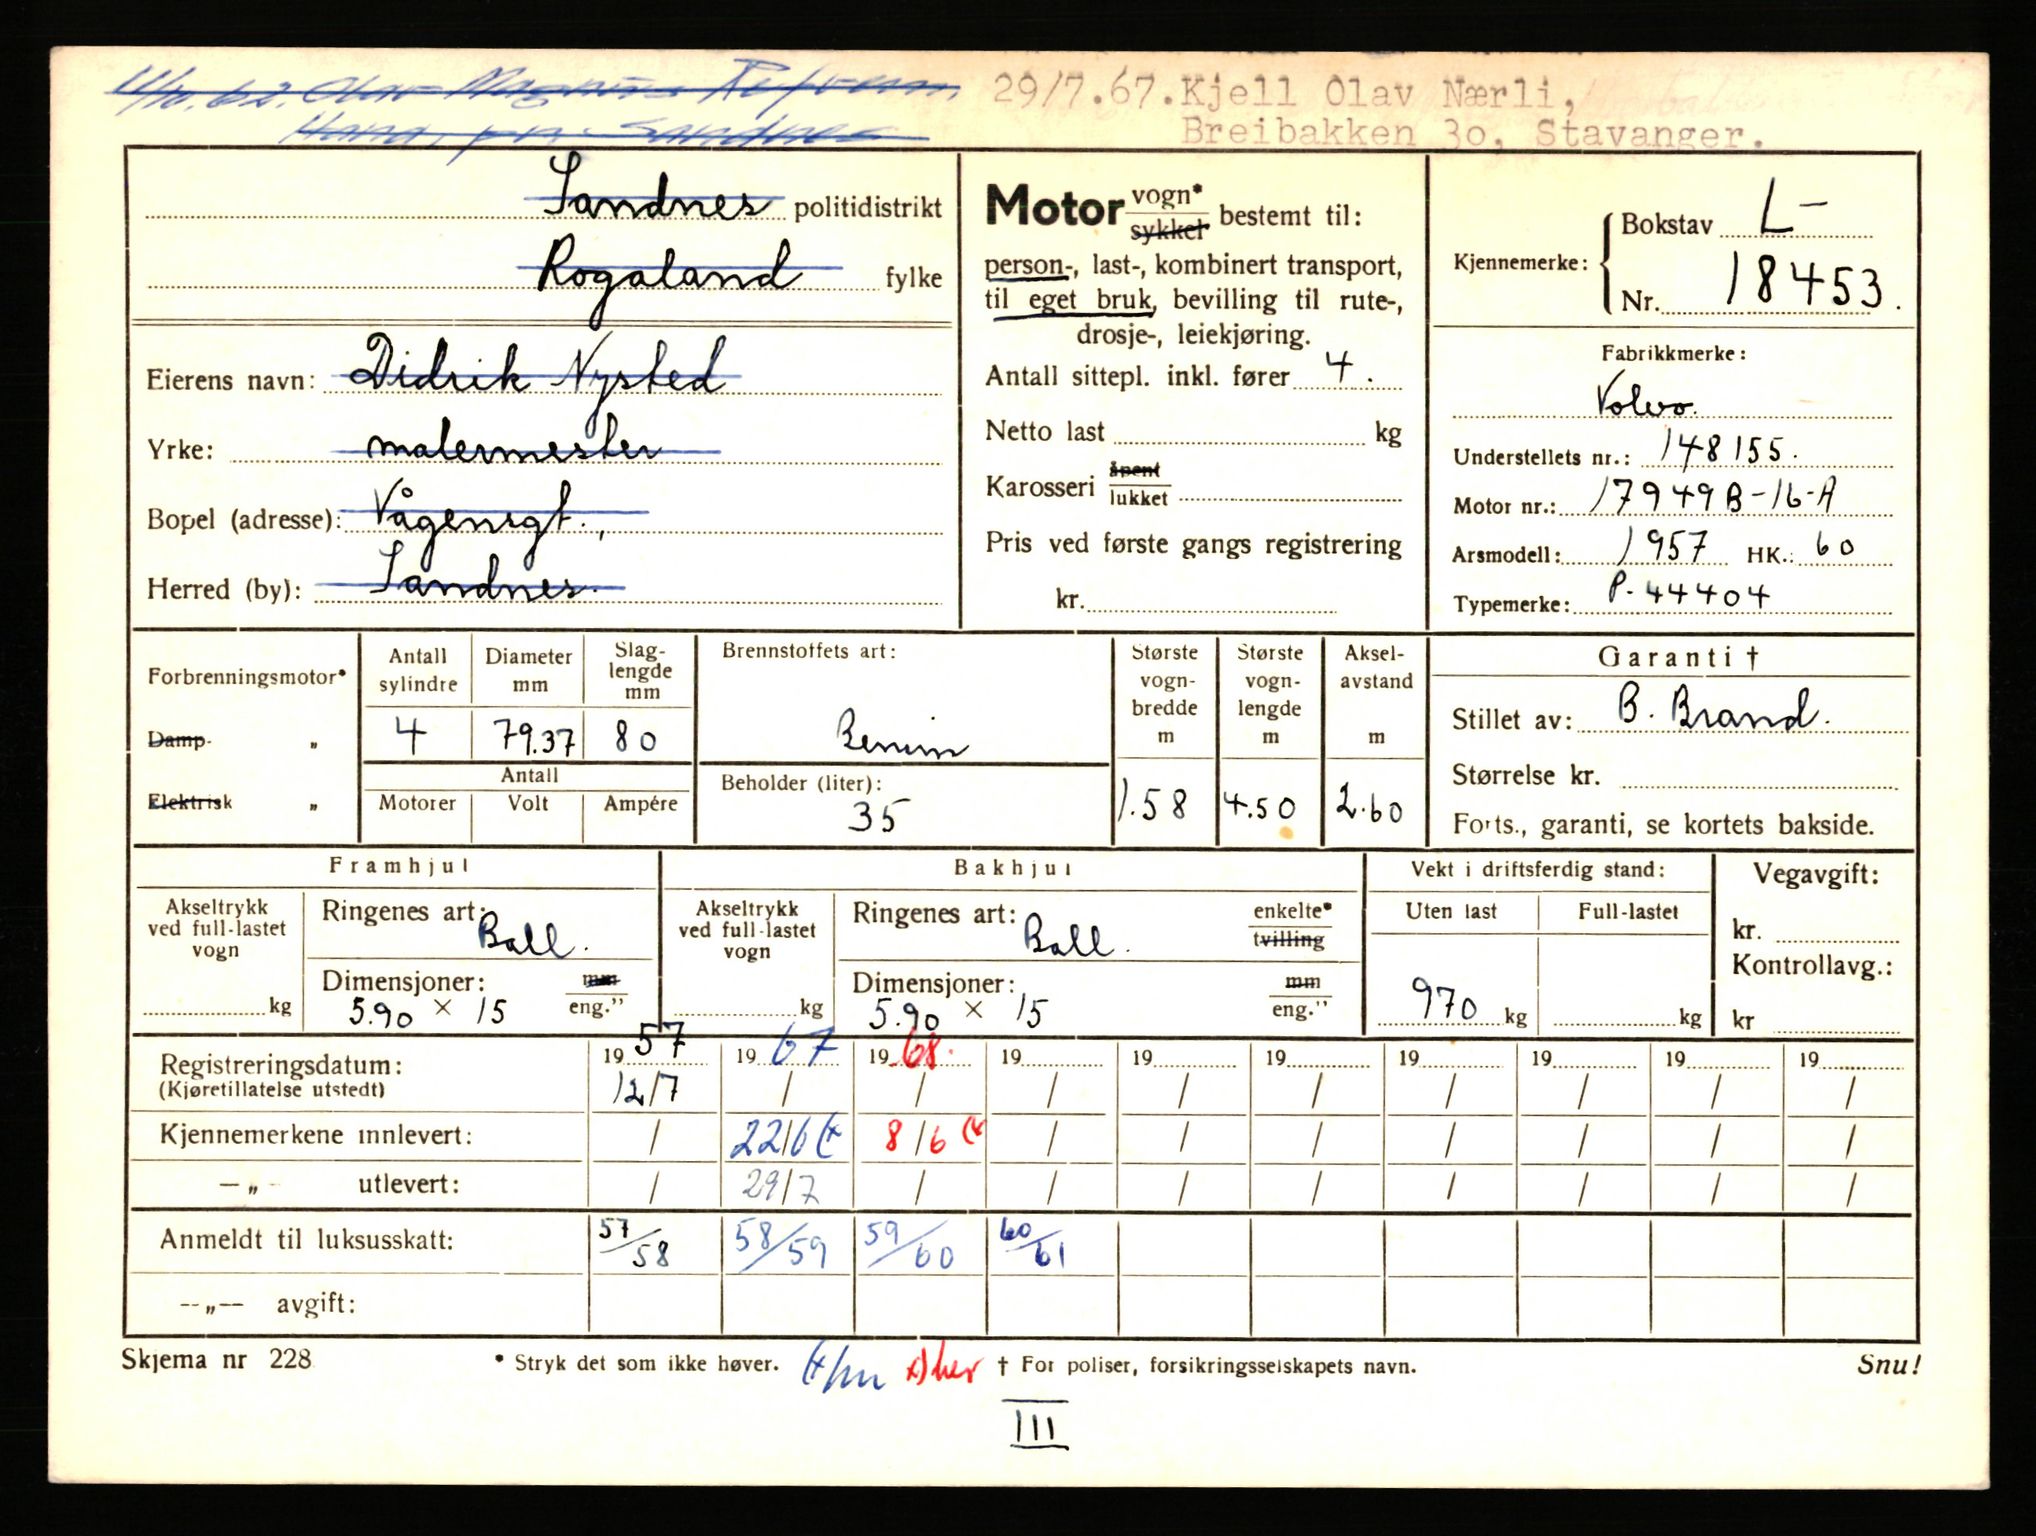 11/10.62. Olav Magnus Refvem,
Hana, pr. Sandnes
29/7.67. Kjell Olav Nærli,
Breibakken 30, Stavanger.
Sandnes politidistrikt
Rogaland fylke
Eierens navn: Didrik Nysted
Yrke: malermester
Bopel (adresse): Vågensgt.,
Herred (by): Sandnes.
Motor vogn* sykkel bestemt til:
person-, last-, kombinert transport,
til eget bruk, bevilling til rute-,
drosje-, leiekjøring.
Antall sittepl. inkl. fører 4.
Netto last kg
Karosseri åpent lukket
Pris ved første gangs registrering
kr.
Kjennemerke: Bokstav L-
Nr. 18453.
Fabrikkmerke:
Volvo.
Understellets nr.: 148155.
Motor nr.: 17949B-16-A
Arsmodell: 1957 HK.: 60
Typemerke: P-44404
Forbrenningsmotor*
Damp- „
Elektrisk „
Antall sylindre 4
Diameter mm 79.37
Slag-lengde mm 80
Antall
Motorer Volt Ampére
Brennstoffets art:
Bensin
Beholder (liter):
35
Største vogn-bredde m 1.58
Største vogn-lengde m 4.50
Aksel-avstand m 2.60
Garanti †
Stillet av: B. Brand.
Størrelse kr.
Forts., garanti, se kortets bakside.
Framhjul
Akseltrykk ved full-lastet vogn kg
Ringenes art: Ball.
Dimensjoner: mm eng."
5.90 × 15
Bakhjul
Akseltrykk ved full-lastet vogn kg
Ringenes art: Ball. enkelte* tvilling
Dimensjoner: mm eng."
5.90 × 15
Vekt i driftsferdig stand:
Uten last Full-lastet
970 kg kg
Vegavgift:
kr.
Kontrollavg.:
kr
Registreringsdatum: 1957 1967 1968. 19 19 19 19 19 19 19
(Kjøretillatelse utstedt) 12/7 / / / / / / / / /
Kjennemerkene innlevert: / 22/6 (x 8/6 (x / / / / / / /
—„— utlevert: / 29/7 / / / / / / / /
Anmeldt til luksusskatt: 57/58 58/59 59/60 60/61
—„— avgift:
Skjema nr 228
* Stryk det som ikke høver.
x) her
† For poliser, forsikringsselskapets navn.
Snu!
III